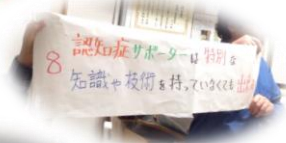 8 認知症サポーターは特別な
知識や技術を持っていなくても出来